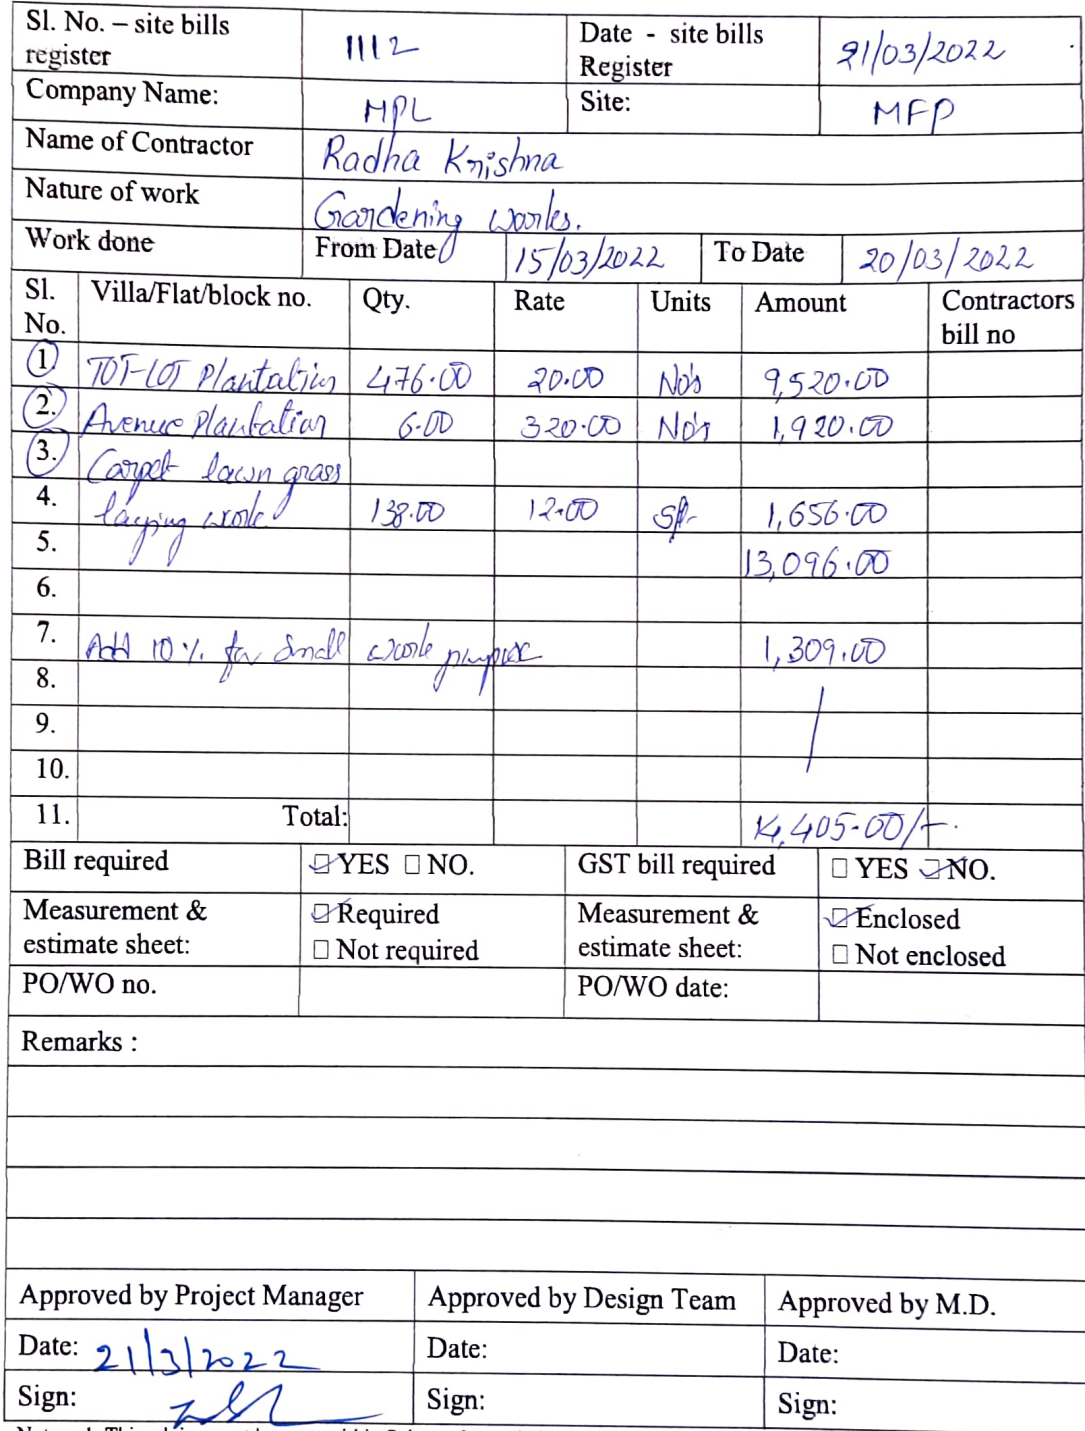 Sl. No. – site bills register 1112 Date - site bills Register 21/03/2022
Company Name: MPL Site: MFP
Name of Contractor Radha Krishna
Nature of work Gardening works.
Work done From Date 15/03/2022 To Date 20/03/2022
Sl. No. Villa/Flat/block no. Qty. Rate Units Amount Contractors bill no
1 TOT-LOT Plantation 476.00 20.00 No's 9,520.00
2. Avenue Plantation 6.00 320.00 No's 1,920.00
3. Carpet lawn grass
4. laying work 138.00 12.00 1,656.00
5. 13,096.00
6.
7. Add 10 % for small work purpose 1,309.00
8.
9.
10.
11. Total: 14,405.00/-.
Bill required YES NO. GST bill required YES NO.
Measurement & estimate sheet: Required Not required Measurement & estimate sheet: Enclosed Not enclosed
PO/WO no. PO/WO date:
Remarks :
Approved by Project Manager Approved by Design Team Approved by M.D.
Date: 21/3/2022 Date: Date:
Sign: Sign: Sign: